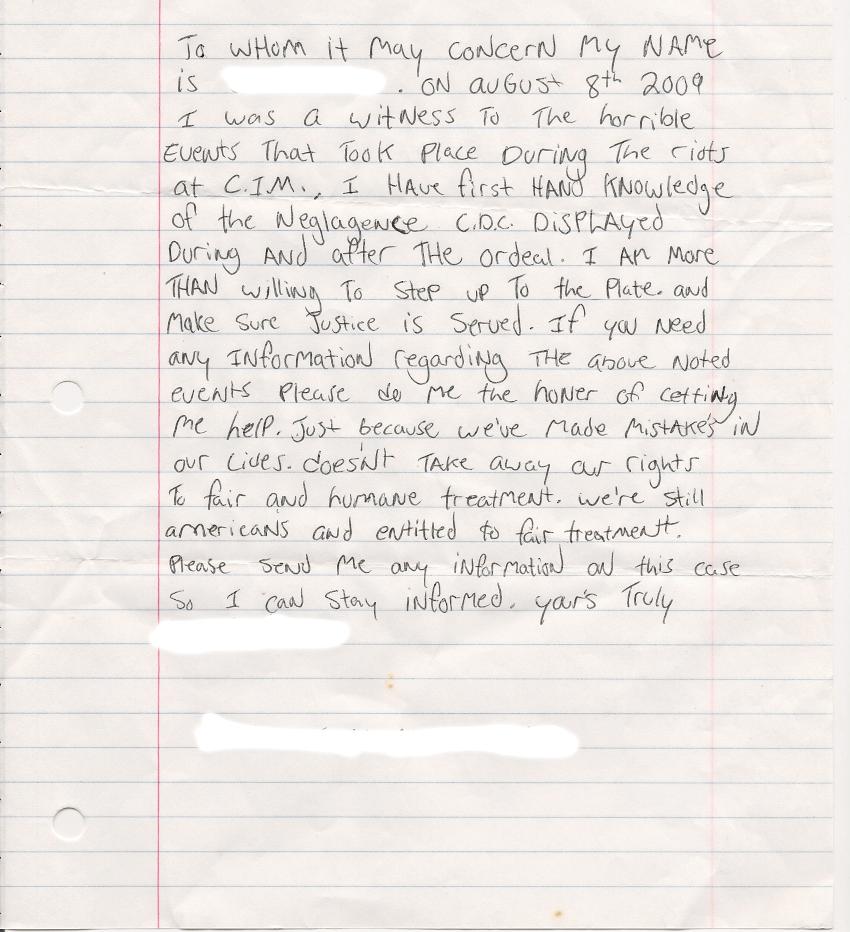 To WHom it May concern My NAMe
is . ON auGust 8th 2009
I was a witNess To The horrible
EVENts That Took Place During The riots
at C.I.M., I HAVe first HAND KNowledge
of the Neglagence C.D.C. DiSPLAYed
During AND after THe ordeal. I AM More
THAN willing To Step up To the Plate. and
Make Sure Justice is Served. If you Need
any INformation regarding THE above Noted
eveNts Please do Me the honer of Letting
Me help. Just because we've Made MistAKe's iN
our Lives. doesn't TAKe away our rights
To fair and humane treatment. we're still
americaNs and entitled to fair treatment.
Please SeNd Me any iNformation oN this case
So I caN Stay iNformed. your's Truly